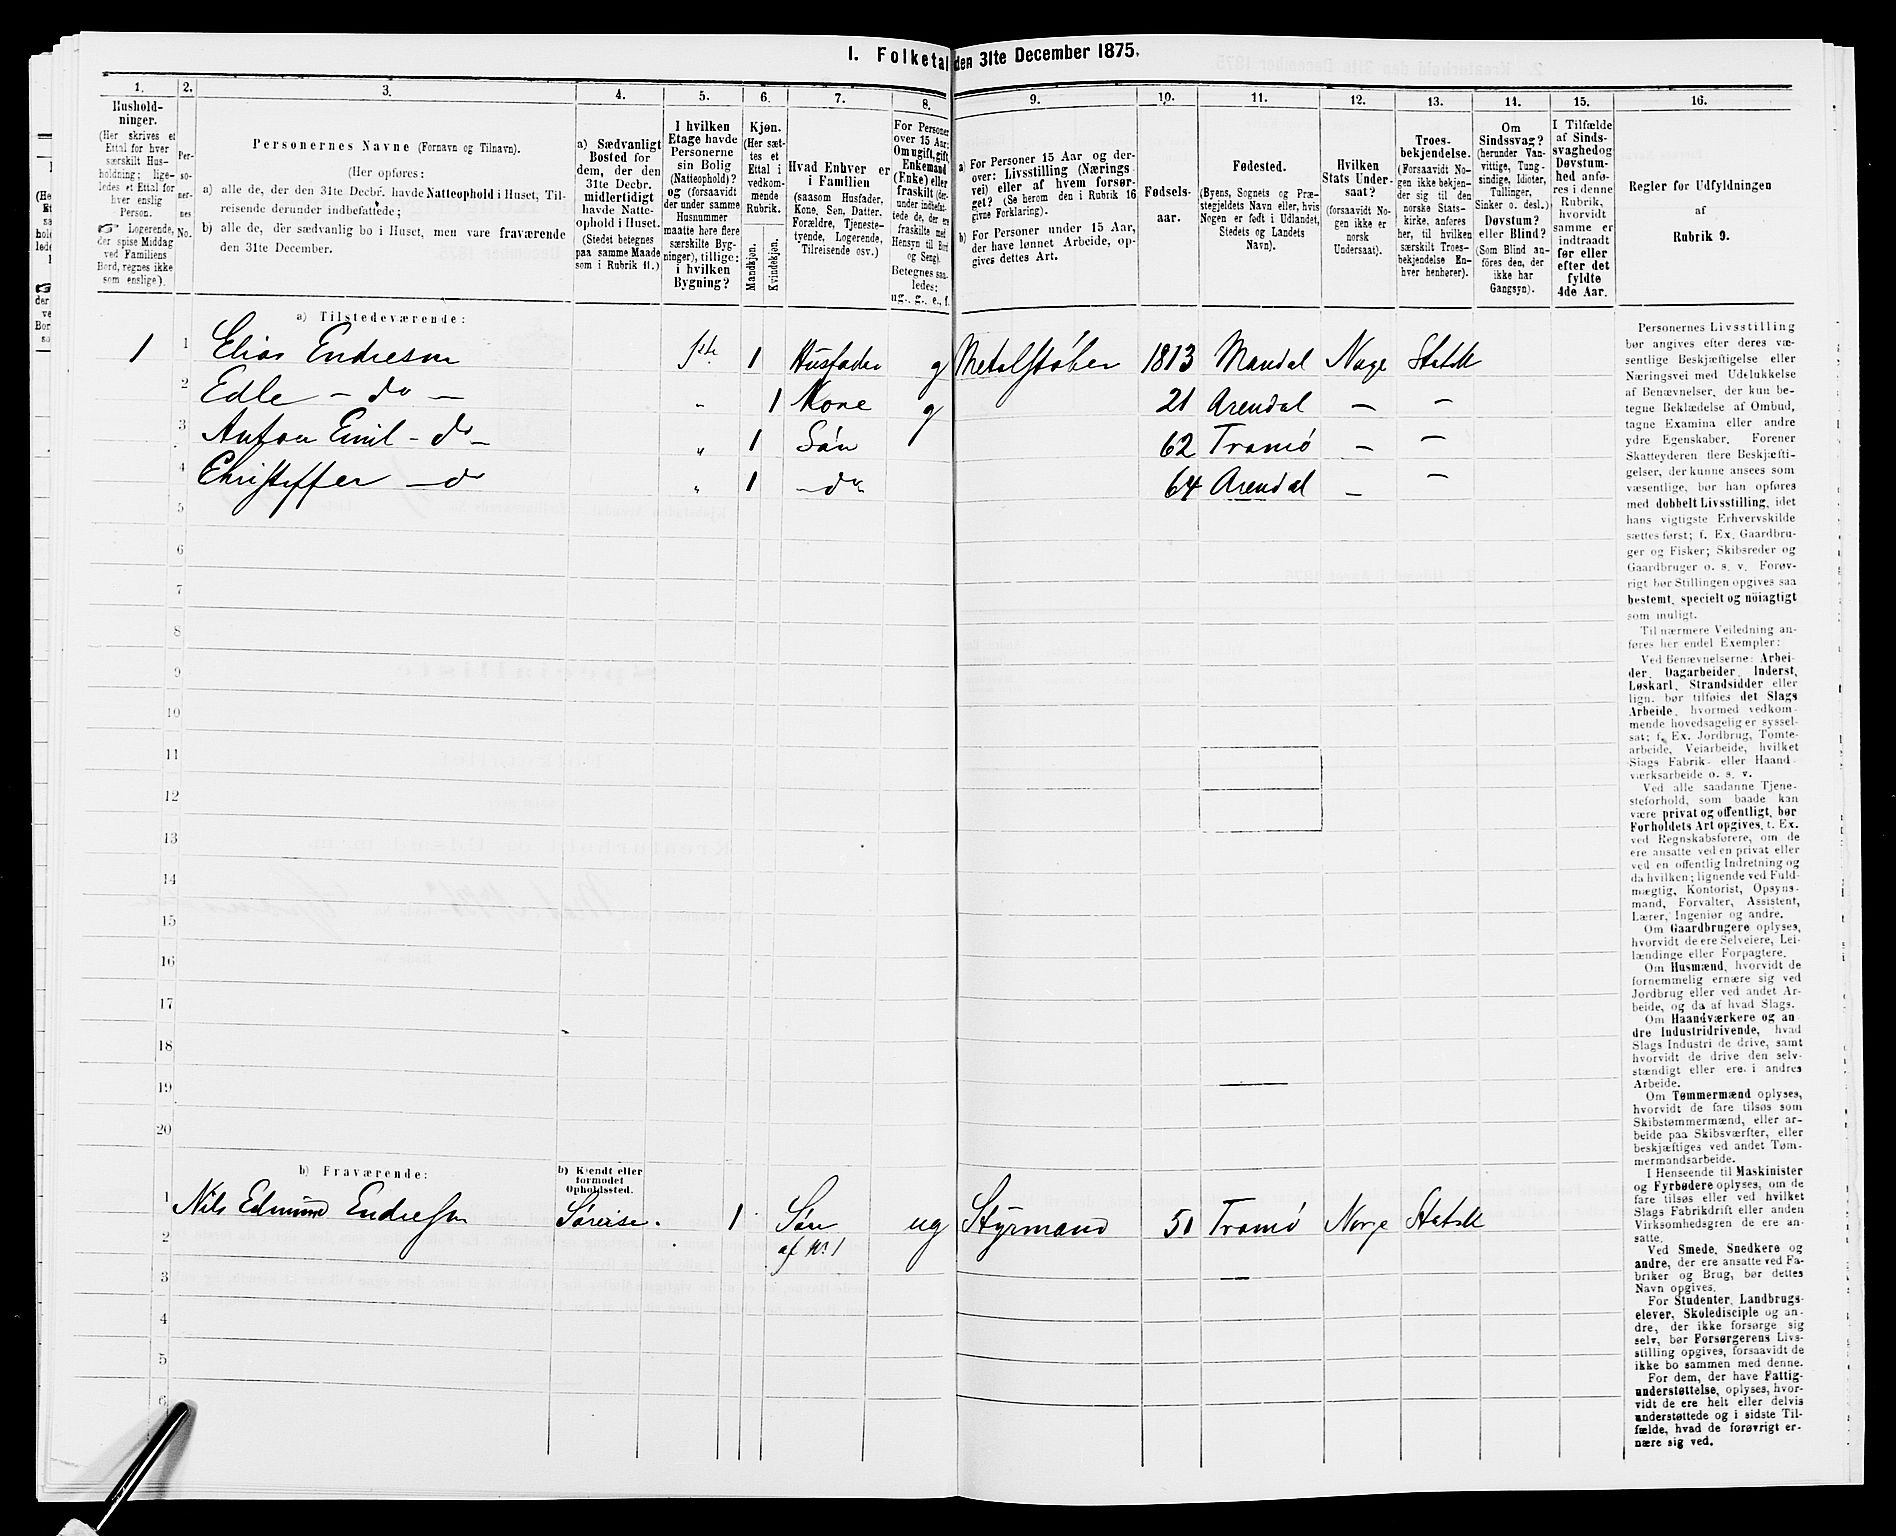 I. Folketal den 31te December 1875.
1.
2.
3.
4.
5.
6.
7.
8.
9.
10.
11.
12.
13.
14.
15.
16.
Hushold-
ninger.
(Her skrives et
Ettal for hver
særskilt Hus-
holdning; lige-
ledes et Ettal for
hver enslig
Person.
Logerende,
der spise Middag
ved Familiens
Bord, regnes ikke
som enslige).
Per-
so-
ner-
nes
No.
Personernes Navne (Fornavn og Tilnavn).
(Her opføres:
a) alle de, der den 31te Decbr. havde Natteophold i Huset, Til-
reisende derunder indbefattede;
b) alle de, der sædvanlig bo i Huset, men vare fraværende
den 31te December.
a) Sædvanligt
Bosted for
dem, der den
31te Decbr.
midlertidigt
havde Natte-
ophold i Huset.
(Stedet betegnes
paa samme Maade
som i Rubrik 11.)
I hvilken
Etage havde
Personerne
sin Bolig
(Natteophold)?
og (forsaavidt
der under samme
Husnummer
maatte høre flere
særskilte Byg-
ninger), tillige:
i hvilken
Bygning?
Kjøn.
(Her sæt-
tes et
Ettal i
vedkom-
mende
Rubrik.
Mandkjøn.
Kvindekjøn.
Hvad Enhver er
i Familien
(saasom Husfader,
Kone, Søn, Datter,
Forældre, Tjeneste-
tyende, Logerende,
Tilreisende osv.)
For Personer
over 15 Aar:
Om ugift, gift,
Enkemand
(Enke) eller
fraskilt (der-
under indbefat-
tede de, der ere
fraskilte med
Hensyn til Bord
og Seng).
Betegnes saa-
ledes:
ug., g., e., f.
a) For Personer 15 Aar og der-
over: Livsstilling (Nærings-
vei) eller af hvem forsør-
get? (Se herom den i Rubrik 16
givne Forklaring).
b) For Personer under 15 Aar,
der have lønnet Arbeide, op-
gives dettes Art.
Fødsels-
aar.
Fødested.
(Byens, Sognets og Præ-
stegjeldets Navn eller, hvis
Nogen er født i Udlandet,
Stedets og Landets
Navn).
Hvilken
Stats Under-
saat?
(forsaavidt No-
gen ikke er
norsk
Undersaat).
Troes-
bekjendelse.
(Forsaavidt No-
gen ikke bekjen-
der sig til den
norske Stats-
kirke, anføres
her, til hvilken
særskilt Troes-
bekjendelse En-
hver henhører).
Om
Sindssvag?
(herunder Van-
vittige, Tung-
sindige, Idioter,
Tullinger,
Sinker o. desl.)
Døvstum?
eller Blind?
(Som Blind an-
føres den, der
ikke har
Gangsyn).
I Tilfælde
af Sinds-
svaghed og
Døvstum-
hed anfø-
res i denne
Rubrik,
hvorvidt
samme er
indtraadt
før eller
efter det
fyldte
4de Aar.
Regler for Udfyldningen
af
Rubrik 9.
a) Tilstedeværende:
1 1 Elias Endresen 1ste 1 Husfader g Metalstøber 1813 Mandal Norge Statsk
2 Edle — do — " 1 Kone g 21 Arendal — —
3 Anton Emil — do — " 1 Søn 62 Tromø — —
4 Christoffer — do " 1 — do — 64 Arendal — —
5
6
7
8
9
10
11
12
13
14
15
16
17
18
19
20
b) Fraværende:
b) Kjendt eller
formodet
Opholdssted.
1 Nils Edmund Endresen Søreise. 1 Søn ug Styrmand 51 Tromø Norge Statsk
2 af No 1
3
4
5
6
Personernes Livsstilling
bør angives efter deres væ-
sentlige Beskjæftigelse eller
Næringsvei med Udelukkelse
af Benævnelser, der kun be-
tegne Beklædelse af Ombud,
tagne Examina eller andre
ydre Egenskaber. Forener
Skatteyderen flere Beskjæfti-
gelser, der kunne ansees som
væsentlige, bør han opføres
med dobbelt Livsstilling, idet
hans vigtigste Erhvervskilde
sættes først; f. Ex. Gaardbru-
ger og Fisker; Skibsreder og
Gaardbruger o. s. v. Forøv-
rigt bør Stillingen opgives saa
bestemt, specielt og nöiagtigt
som muligt.
Til nærmere Veiledning an-
føres her endel Exempler:
Ved Benævnelserne: Arbei-
der, Dagarbeider, Inderst,
Løskarl, Strandsidder eller
lign. bør tilføies det Slags
Arbeide, hvormed vedkom-
mende hovedsagelig er syssel-
sat; f. Ex. Jordbrug, Tomte-
arbeide, Veiarbeide, hvilket
Slags Fabrik- eller Haand-
værksarbeide o. s. v.
Ved alle saadanne Tjene-
steforhold, som baade kan
være privat og offentligt, bør
Forholdets Art opgives, t. Ex.
ved Regnskabsførere, om de
ere ansatte ved en privat eller
ved en offentlig Indretning og
da hvilken; lignende ved Fuld-
mægtig, Kontorist, Opsyns-
mand, Forvalter, Assistent,
Lærer, Ingeniør og andre.
Om Gaardbrugere oplyses,
hvorvidt de ere Selveiere, Lei-
lændinge eller Forpagtere.
Om Husmænd, hvorvidt de
fornemmelig ernære sig ved
Jordbrug eller ved andet Ar-
beide, og da af hvad Slags.
Om Haandværkere og an
dre Industridrivende, hvad
Slags Industri de drive, samt
hvorvidt de drive den selv-
stændigt eller ere i andres
Arbeide.
Om Tømmermænd oplyses,
hvorvidt de fare tilsøs som
Skibstømmermænd, eller ar-
beide paa Skibsværfter, eller
beskjæftiges ved andet Tøm-
mermandsarbeide.
I Henseende til Maskinister
og Fyrbødere oplyses, om de
fare tilsøs eller ved hvilket
Slags Fabrikdrift eller anden
Virksomhedsgren de ere an-
satte.
Ved Smede, Snedkere og
andre, der ere ansatte ved Fa-
briker og Brug, bør dettes
Navn opgives.
For Studenter, Landbrugs-
elever, Skoledisciple og an-
dre, der ikke forsørge sig
selv, bør Forsørgerens Livs-
stilling opgives, forsaavidt de
ikke bo sammen med denne.
For dem, der have Fattig-
understøttelse, oplyses, hvor-
vidt de ere helt eller delvis
understøttede og i sidste Til-
fælde, hvad de forøvrigt er-
nære sig ved.